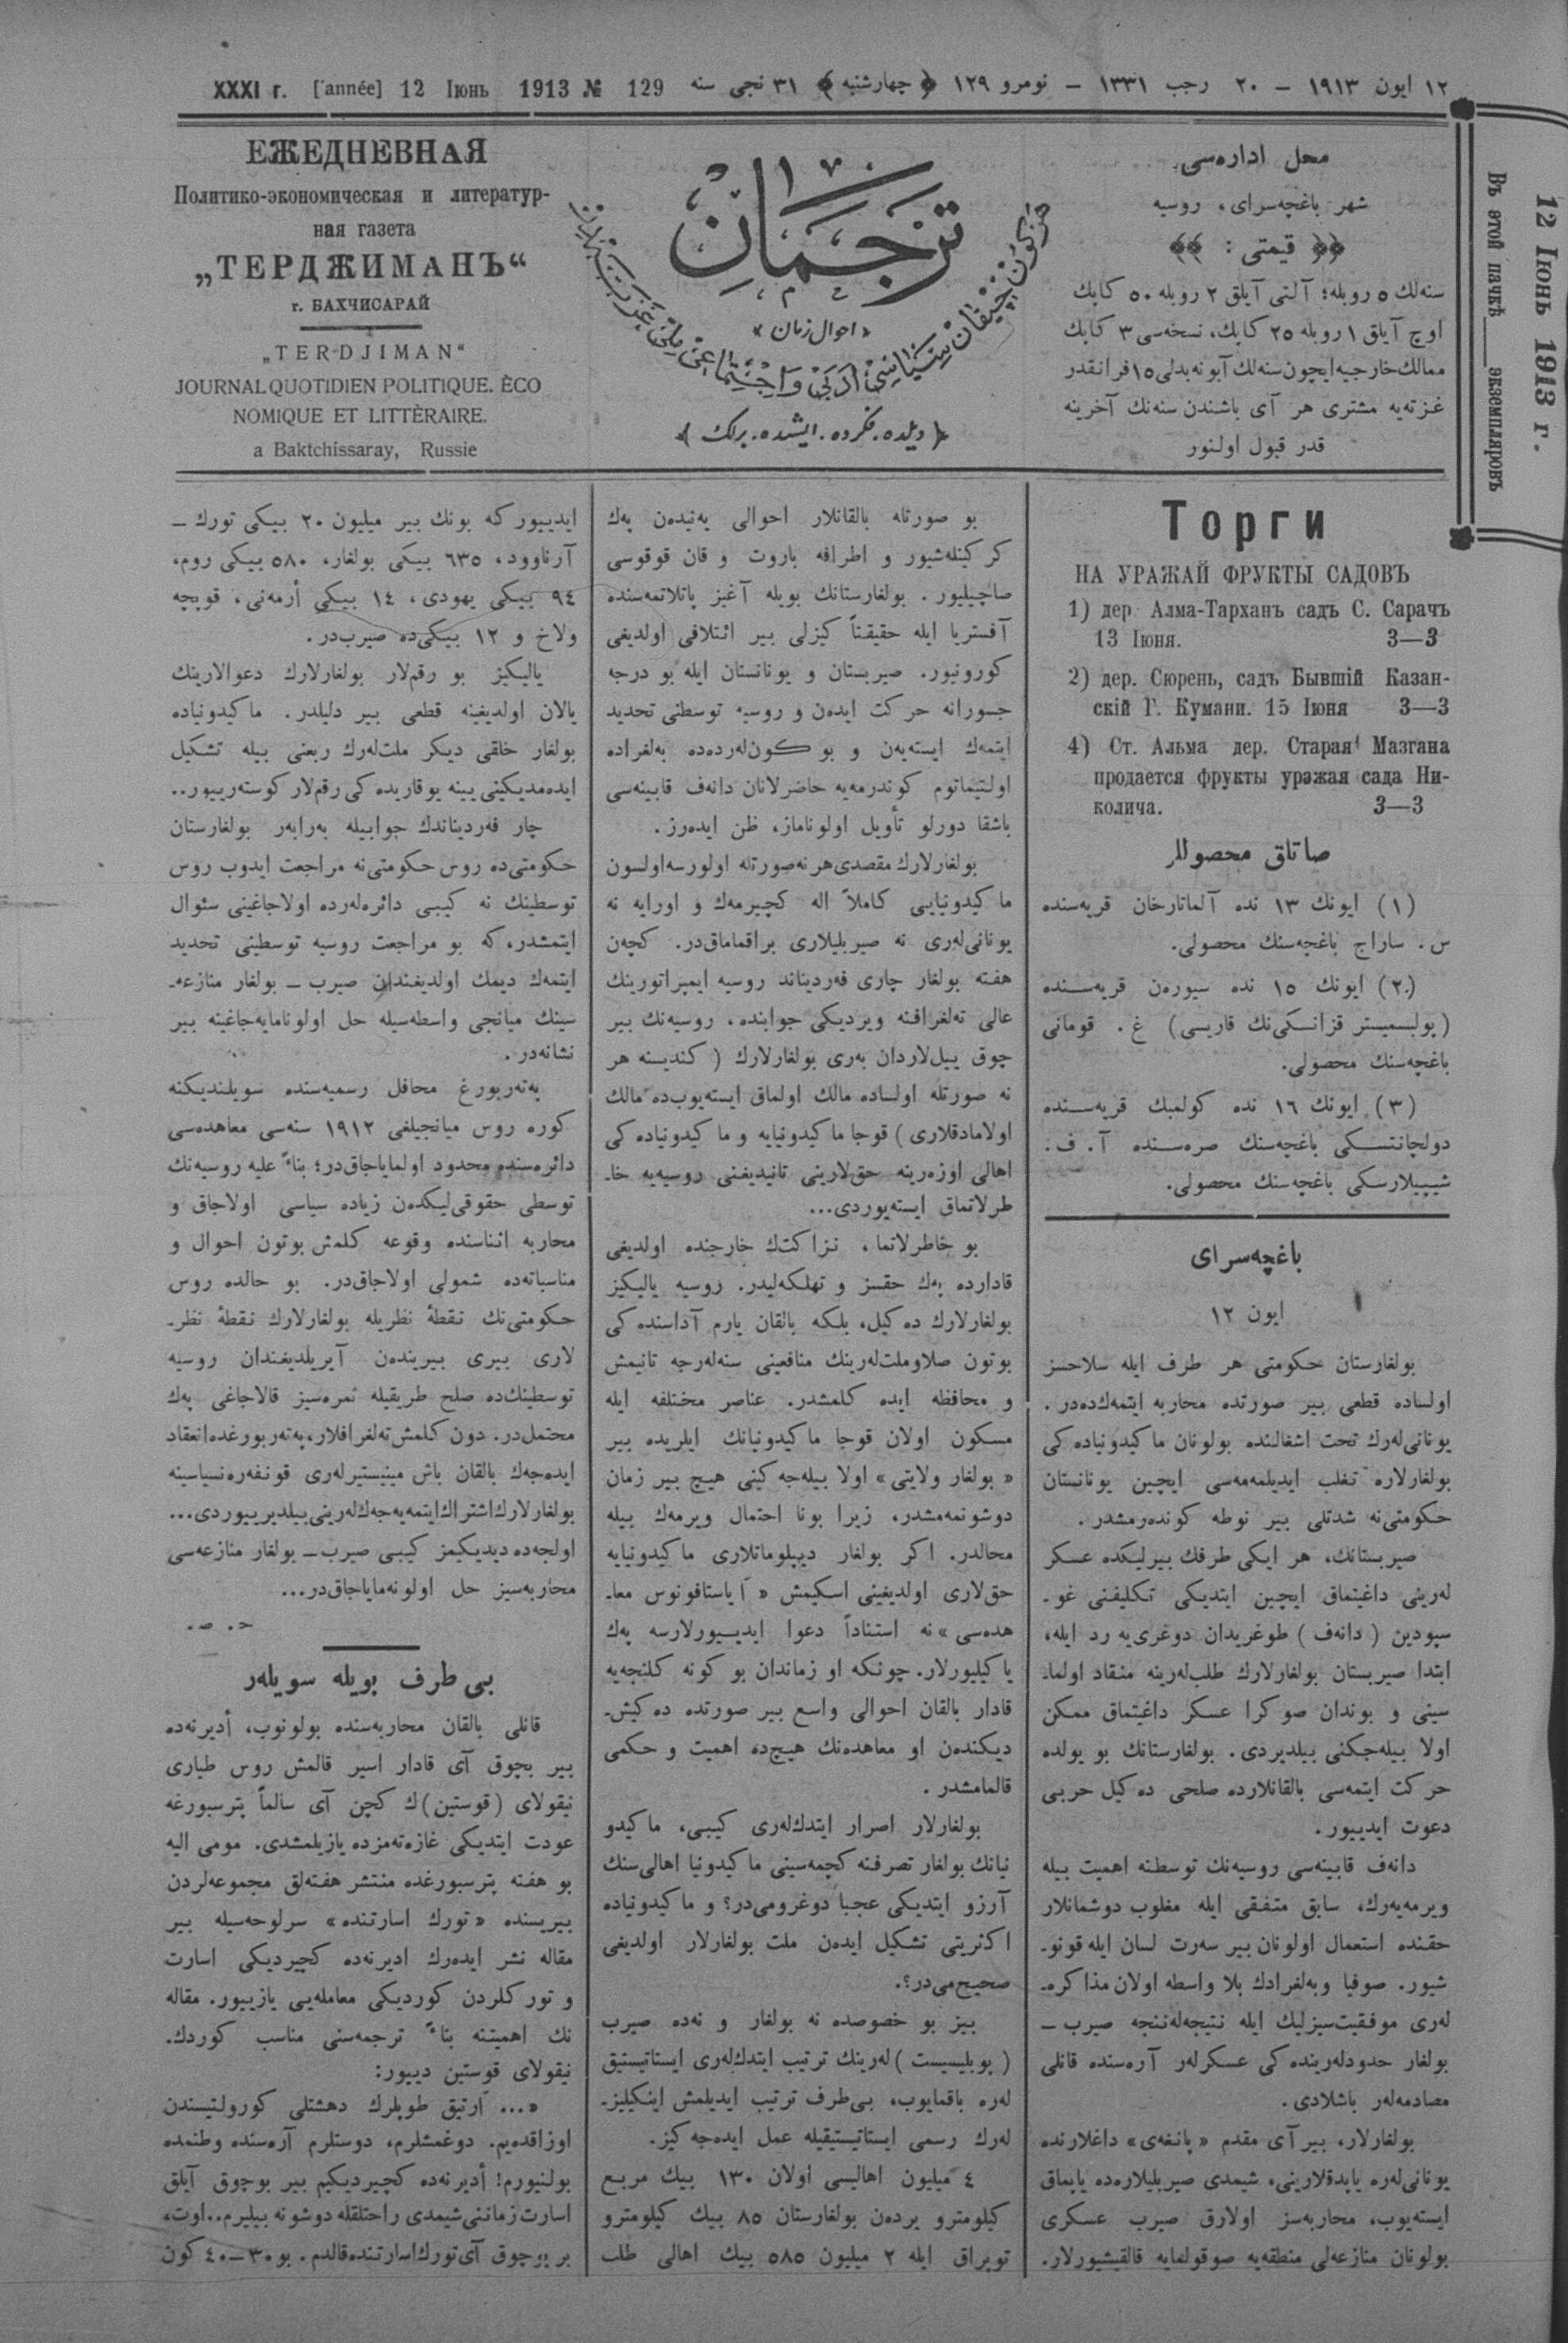 ١٢ ايون ١٩١٣ – ٢٠ رجب ١٣٣١ – نومرو ١٢٩ ﴿ چهارشنبه ﴾ ٣١ نجى سنه 129 № 1913 Іюнь 12 [année] XXXI г.
ЕЖЕДНЕВНАЯ
Политико-экономическая и литератур-
ная газета
„ТЕРДЖИМАНЪ“
г. БАХЧИСАРАЙ
„TERDJIMAN“
JOURNAL QUOTIDIEN POLITIQUE. ÈCO
NOMIQUE ET LITTÈRAIRE.
a Baktchissaray, Russie
ترجمان
«احوال زمان»
﴿ ديلده. فكرده. ايشده. برلك ﴾
محل اداره‌سى
شهر باغچه‌سراى، روسيه
قيمتى :
سنه‌لك ٥ روبله؛ آلتى آيلق ٢ روبله ٥٠ كاپك
اوچ آيلق ١ روبله ٢٥ كاپك، نسخه‌سى ٣ كاپك
ممالك خارجيه ايچون سنه‌لك آبونه بدلى ١٥ فرانقدر
غزته‌يه مشترى هر آى باشندن سنه‌نك آخرينه
قدر قبول اولنور
12 Іюнь 1913 г.
Въ этой пачкѣ ____ экземпляровъ
Торги
НА УРАЖАЙ ФРУКТЫ САДОВЪ
1) дер. Алма-Тарханъ садъ С. Сарачъ
13 Іюня. 3—3
2) дер. Сюрень, садъ Бывшій Казан-
скій Г. Кумани. 15 Іюня 3—3
4) Ст. Альма дер. Старая Мазгана
продается фрукты уражая сада Ни-
колича. 3—3
صاتلق محصوللر
(١) ايونك ١٣ نده آلماتارخان قريه‌سنده
س. ساراج باغچه‌سنك محصولى.
(٢) ايونك ١٥ نده سيورەن قريه‌سنده
(پولبسميستر قزانسكى‌نك قاريسى) غ. قومانى
باغچه‌سنك محصولى.
(٣) ايونك ١٦ نده كولمبك قريه‌سنده
دولچانتسكى باغچه‌سنك صره‌سنده آ. ف.
شيپيلارسكى باغچه‌سنك محصولى.
باغچه‌سراى
ايون ١٢
بولغارستان حكومتى هر طرف ايله سلاحسز
اولساده قطعى بير صورتده محاربه ايتمه‌ك‌ده‌در.
يونانى‌لەرك تحت اشغالنده بولونان ماكيدونياده كى
بولغارلاره تغلب ايديلمه‌مه‌سى ايچين يونانستان
حكومتى‌نه شدتلى بير نوطه كونده‌رمشدر.
صيربستانك، هر ايكى طرفك بيرليكده عسكر
لەرينى داغيتماق ايچين ايتديكى تكليفنى غو-
سپودين (دانەف) طوغريدان دوغرى‌يه رد ايله،
ابتدا صيربستان بولغارلارك طلب‌لەرينه منقاد اولما-
سينى و بوندان صوكرا عسكر داغيتماق ممكن
اولا بيله‌جكنى بيلديردى. بولغارستانك بو يولده
حركت ايتمه‌سى بالقانلارده صلحى ده‌كيل حربى
دعوت ايدييور.
دانەف قابينه‌سى روسيه‌نك توسطنه اهميت بيله
ويرمه‌يه‌رك، سابق متفقى ايله مغلوب دوشمانلار
حقنده استعمال اولونان بير سەرت لسان ايله قونو-
شيور. صوفيا و بەلغرادك بلا واسطه اولان مذاكره-
لەرى موفقيت‌سيزليك ايله نتيجه‌لەننجه صيرب –
بولغار حدودلەرينده كى عسكرلەر آره‌سنده قانلى
مصادمه‌لەر باشلادى.
بولغارلار، بير آى مقدم «پانغەى» داغلارنده
يونانى‌لەره ياپدقلارينى، شيمدى صيربليلاره‌ده ياپماق
ايسته‌يوب، محاربه‌سز اولارق صيرب عسكرى
بولونان منازعه‌لى منطقه‌يه صوقولمايه قالقيشيورلار.
بو صورتله بالقانلار احوالى يه‌نيدەن پەك
كركينله‌شيور و اطرافه باروت و قان قوقوسى
صاچيليور. بولغارستانك بويله آغيز پاتلاتمه‌سنده
آفستريا ايله حقيقتاً كيزلى بير ائتلافى اولديغى
كورونيور. صيربستان و يونانستان ايله بو درجه
جسورانه حركت ايدەن و روسيه توسطنى تحديد
ايتمەك ايسته‌يەن و بو كون‌لەرده‌ده بەلغراده
اولتيماتوم كوندرمه‌يه حاضرلانان دانەف قابينه‌سى
باشقا دورلو تأويل اولوناماز، ظن ايده‌رز.
بولغارلارك مقصدى هر نه صورتله اولورسه اولسون
ماكيدونيايى كاملاً اله كچيرمەك و اورايه نه
يونانى‌لەرى نه صيربليلارى براقماماق‌در. كچەن
هفته بولغار چارى فەرديناند روسيه ايمپراتورينك
عالى تەلغرافنه ويرديكى جوابنده، روسيه‌نك بير
چوق ييل‌لاردان بەرى بولغارلارك (كنديسنه هر
نه صورتله اولساده مالك اولماق ايسته‌يوب‌ده مالك
اولامادقلارى) قوجا ماكيدونيايه و ماكيدونياده كى
اهالى اوزه‌رينه حق‌لارينى تانيديغنى روسيه‌يه خا-
طرلاتماق ايسته‌يوردى...
بو خاطرلاتما، نزاكتك خارجنده اولديغى
قادارده پەك حقسز و تهلكه‌ليدر. روسيه ياليكيز
بولغارلارك ده‌كيل، بلكه بالقان يارم آداسنده كى
بوتون صلاو ملت‌لەرينك منافعينى سنه‌لەرجه تانيمش
و محافظه ايده كلمشدر. عناصر مختلفه ايله
مسكون اولان قوجا ماكيدونيانك ايلريده بير
«بولغار ولايتى» اولا بيله‌جه كينى هيچ بير زمان
دوشونمه‌مشدر، زيرا بونا احتمال ويرمەك بيله
محالدر. اكر بولغار ديپلوماتلارى ماكيدونيايه
حق‌لارى اولديغينى اسكيمش «آياستافونوس معا-
هده‌سى»نه استناداً دعوا ايدييورلارسه پەك
ياكيليورلار. چونكه او زماندان بو كونه كلنجه‌يه
قادار بالقان احوالى واسع بير صورتده ده‌كيش-
ديكندەن او معاهده‌نك هيچ‌ده اهميت و حكمى
قالمامشدر.
بولغارلار اصرار ايتدك‌لەرى كيبى، ماكيدو
نيانك بولغار تصرفنه كچمه‌سينى ماكيدونيا اهالى‌سنك
آرزو ايتديكى عجبا دوغرومى‌در؟ و ماكيدونياده
اكثريتى تشكيل ايدەن ملت بولغارلار اولديغى
صحيح‌مى‌در؟.
بيز بو خصوصده نه بولغار و نه‌ده صيرب
(پوبليسيست) لەرينك ترتيب ايتدك‌لەرى ايستاتيستيق
لەره باقمايوب، بى‌طرف ترتيب ايديلمش اينكيليز-
لەرك رسمى ايستاتيستيقيله عمل ايده‌جه كيز.
٤ ميليون اهاليسى اولان ١٣٠ بيك مربع
كيلومترو يردەن بولغارستان ٨٥ بيك كيلومترو
توپراق ايله ٢ ميليون ٥٨٥ بيك اهالى طلب
ايدييور كه بونك بير ميليون ٢٠ بيكى تورك –
آرناوود، ٦٣٥ بيكى بولغار، ٥٨٠ بيكى روم،
٩٤ بيكى يهودى، ١٤ بيكى أرمه‌نى، قوچچه
ولاخ و ١٢ بيكى‌ده صيرب‌در.
ياليكيز بو رقم‌لار بولغارلارك دعوالارينك
يالان اولديغينه قطعى بير دليلدر. ماكيدونياده
بولغار خلقى ديكر ملت‌لەرك ربعنى بيله تشكيل
ايده‌مديكينى يينه يوقاريده كى رقم‌لار كوسته‌رييور..
چار فەرديناندك جوابيله بەرابەر بولغارستان
حكومتى‌ده روس حكومتى‌نه مراجعت ايدوب روس
توسطينك نه كيبى دائره‌لەرده اولاجاغينى سئوال
ايتمشدر، كه بو مراجعت روسيه توسطينى تحديد
ايتمەك ديمك اولديغندان صيرب – بولغار منازعه-
سينك ميانجى واسطه‌سيله حل اولونامايه‌جاغينه بير
نشانه‌در.
پەتەربورغ محافل رسميه‌سنده سويلنديكنه
كوره روس ميانجيلغى ١٩١٢ سنه‌سى معاهده‌سى
دائره‌سنده محدود اولماياجاق‌در؛ بناءً عليه روسيه‌نك
توسطى حقوقى‌ليكدەن زياده سياسى اولاجاق و
محاربه اثناسنده وقوعه كلمش بوتون احوال و
مناسباته‌ده شمولى اولاجاق‌در. بو حالده روس
حكومتى‌نك نقطۀ نظريله بولغارلارك نقطۀ نظر-
لارى بيرى بيريندەن آيريلديغندان روسيه
توسطينك‌ده صلح طريقيله ثمره‌سيز قالاجاغى پەك
محتمل‌در. دون كلمش تەلغرافلار، پەتەربورغده انعقاد
ايده‌جەك بالقان باش مينيستيرلەرى قونفەره‌نسياسينه
بولغارلارك اشتراك ايتمه‌يه‌جەك‌لەرينى بيلدييرييوردى...
اولجه‌ده ديديكيمز كيبى صيرب – بولغار منازعه‌سى
محاربه‌سيز حل اولونه‌ماياجاق‌در...
ح. ص.
بى طرف بويله سويلەر
قانلى بالقان محاربه‌سنده بولونوب، أديرنه‌ده
بير بچوق آى قادار اسير قالمش روس طيارى
نيقولاى (قوستين)ك كچن آى سالماً پترسبورغه
عودت ايتديكى غازه‌ته‌مزده يازيلمشدى. مومى اليه
بو هفته پترسبورغده منتشر هفته‌لق مجموعه‌لردن
بيريسنده «تورك اسارتنده» سرلوحه‌سيله بير
مقاله نشر ايدەرك اديرنه‌ده كچيرديكى اسارت
و توركلردن كورديكى معامله‌يى يازييور. مقاله
نك اهميتنه بناءً ترجمه‌سنى مناسب كوردك.
نيقولاى قوستين دييور:
«... آرتيق طوپلرك دهشتلى كورولتيسندن
اوزاقده‌يم. دوغمشلرم، دوستلرم آره‌سنده وطنمده
بولنيورم! أديرنه‌ده كچيرديكيم بير بوچوق آيلق
اسارت زماننى شيمدى راحتلقله دوشونه بيليرم.. اوت،
بر بوچوق آى تورك اسارتنده قالدم. بو ٣٠–٤٠ كون